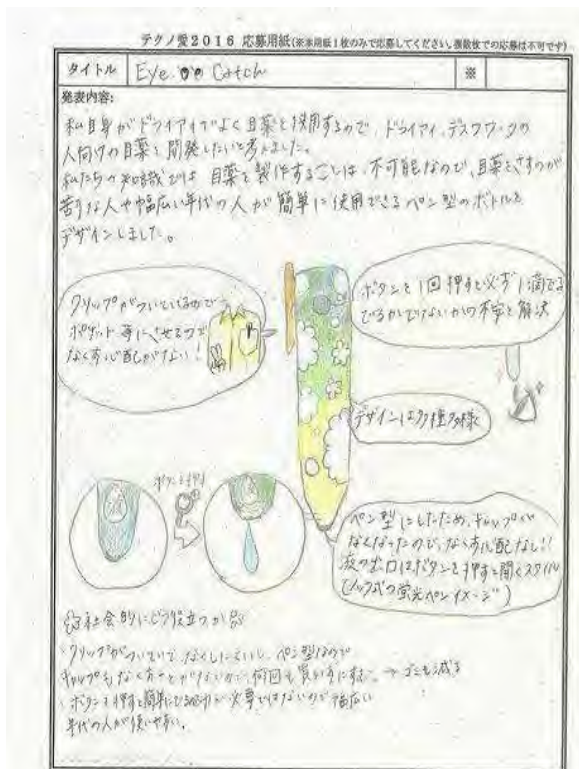 テクノ愛2016 応募用紙(※本用紙1枚のみで応募してください。複数枚での応募は不可です)
タイトル Eye Catch ※
発表内容:
私自身がドライアイでよく目薬を使用するので、ドライアイ、デスクワークの
人向けの目薬を開発したいと考えました。
私たちの知識では目薬を製作することは、不可能なので、目薬をさすのが
苦手な人や幅広い年代の人が簡単に使用できるペン型のボトルを
デザインしました。
クリップがついているので
ポケット等にさせるので
なくす心配がない!
ボタンを1回押すと必ず1滴でる
でるかでないかの不安を解決
デザインは多種多様
ボタンを押す
ペン型にしたため、キャップが
なくなったので、なくす心配なし!!
液の出口はボタンを押すと開くスタイル
(ノック式の蛍光ペンイメージ)
社会的にどう役立つか
・クリップがついていて、なくしにくいし、ペン型なので
キャップもなくすことがないので、何回も買わずにすむ。→ゴミも減る
・ボタンを押すと簡単にでる 必要ではないので幅広い
年代の人が使いやすい。